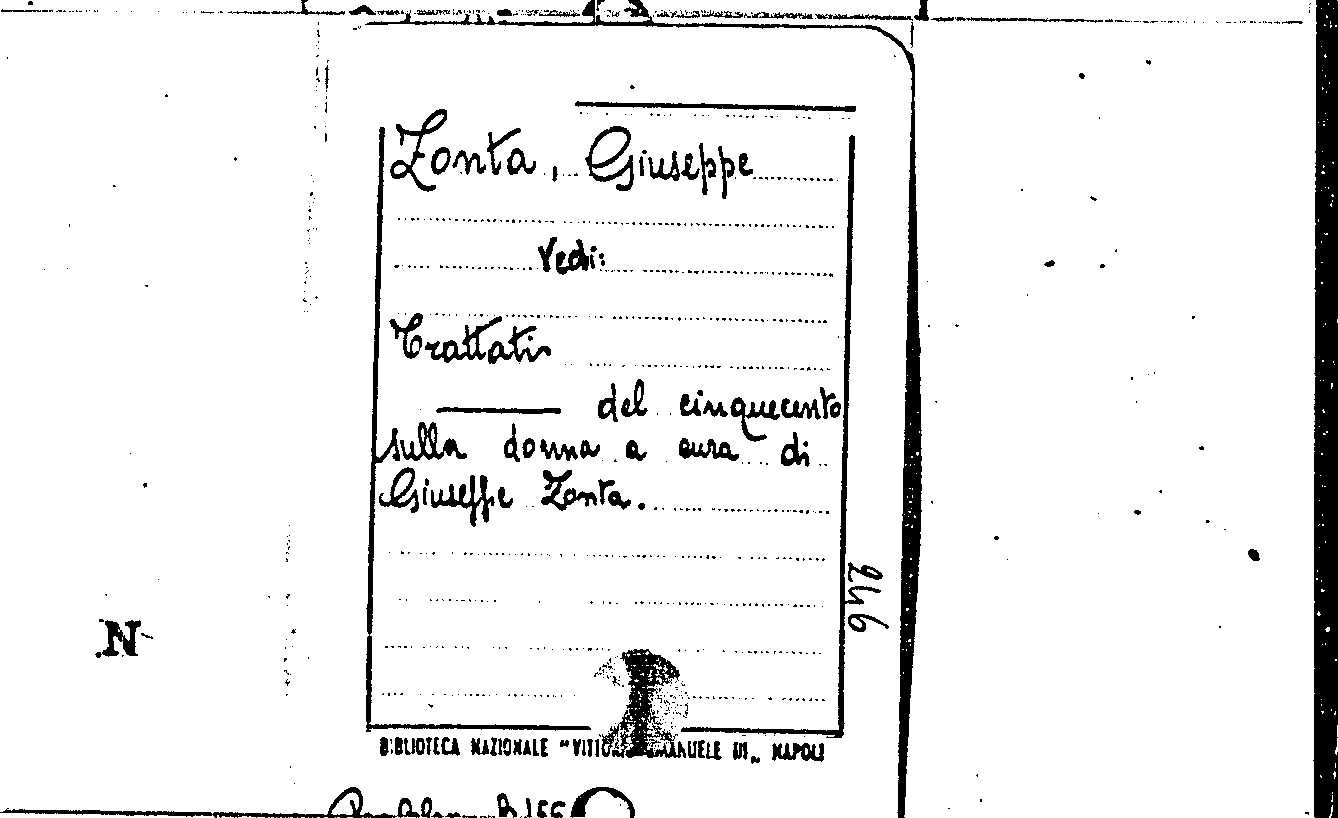 Zonta, Giuseppe
Vedi:
Trattati
——— del cinquecento
sulla donna a cura di
Giuseppe Zonta.
246
N
BIBLIOTECA NAZIONALE "VITTORIO EMANUELE III„ NAPOLI